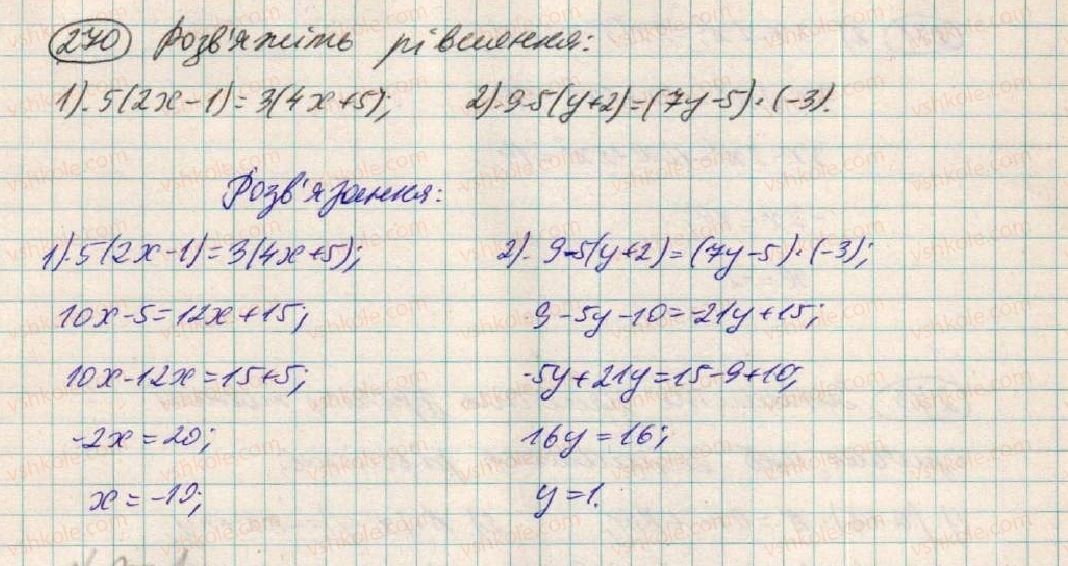 270 Розв'яжіть рівняння:
1). 5(2x-1)=3(4x+5); 2). 9-5(y+2)=(7y-5)·(-3).
Розв'язання:
1). 5(2x-1)=3(4x+5);
10x-5=12x+15;
10x-12x=15+5;
-2x=20;
x=-10;
2). 9-5(y+2)=(7y-5)·(-3);
9-5y-10=-21y+15;
-5y+21y=15-9+10;
16y=16;
y=1.